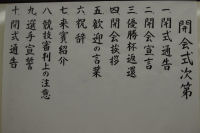 開会式次第
一 開式通告
二 開会宣言
三 優勝杯返還
四 開会挨拶
五 歓迎の言葉
六 祝辞
七 来賓紹介
八 競技審判上の注意
九 選手宣誓
十 閉式通告